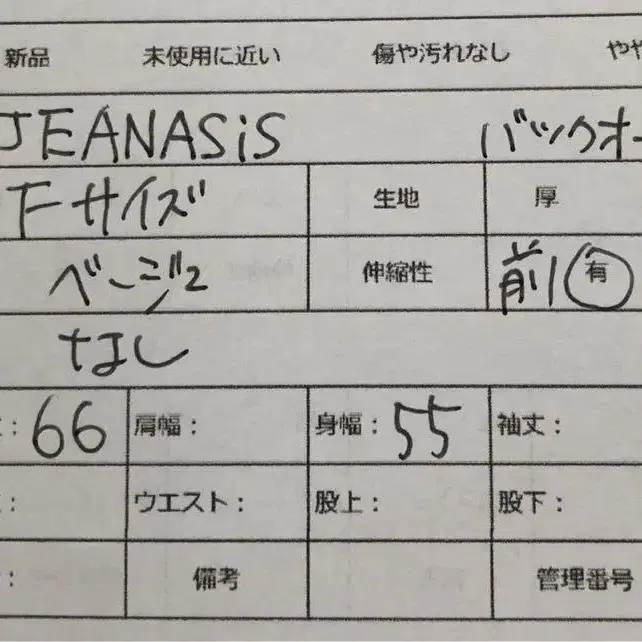 新品 未使用に近い 傷や汚れなし やや
JEANASiS バックオー
Fサイズ 生地 厚
ベージュ 伸縮性 前 有
なし
: 66 肩幅: 身幅: 55 袖丈:
: ウエスト: 股上: 股下:
: 備考 管理番号